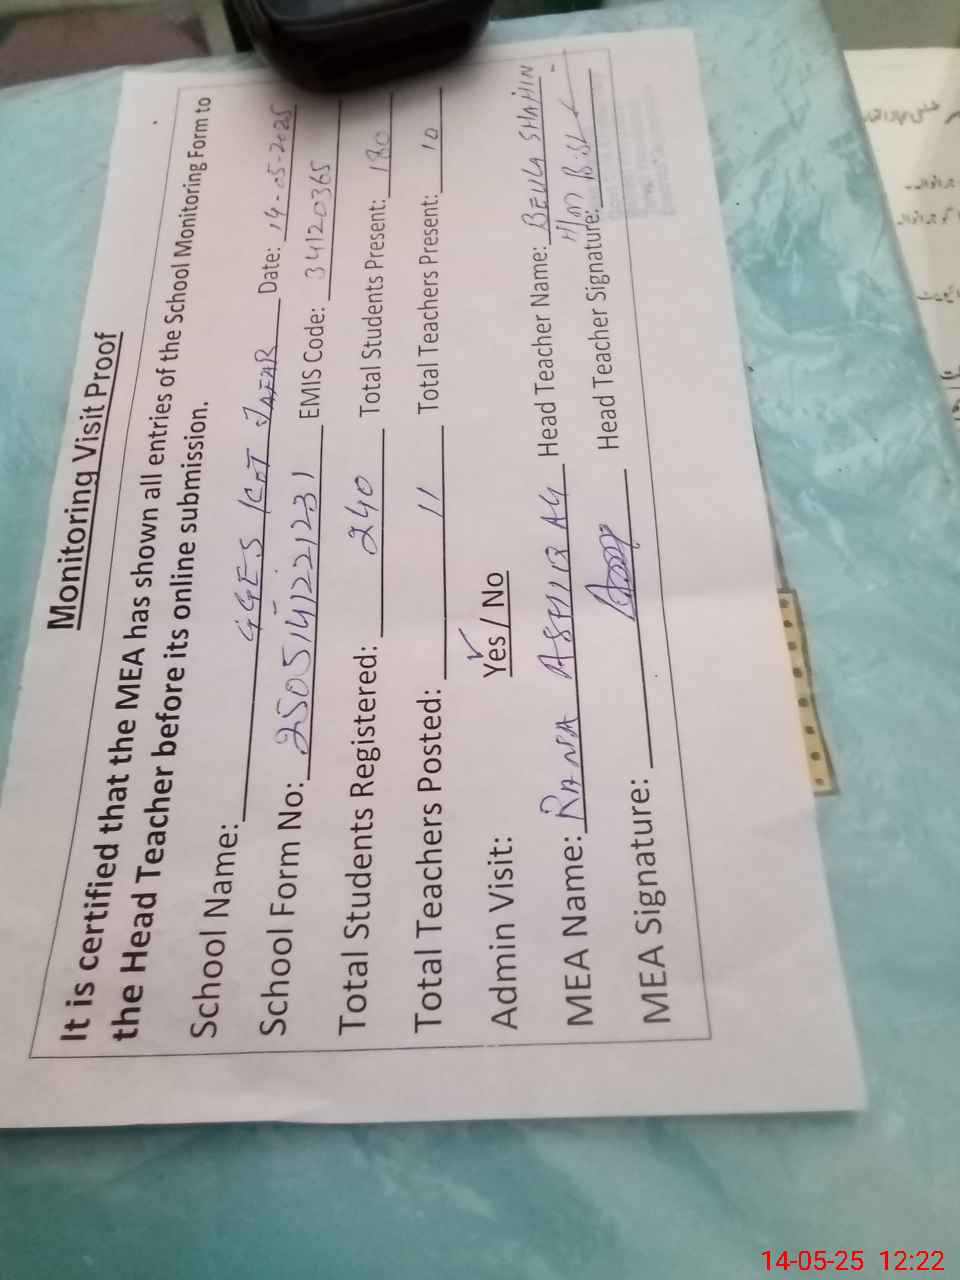 Monitoring Visit Proof
It is certified that the MEA has shown all entries of the School Monitoring Form to
the Head Teacher before its online submission.
School Name: GGES KOT JAFAR Date: 14-05-2025
School Form No: 250514221231 EMIS Code: 34120365
Total Students Registered: 240 Total Students Present: 180
Total Teachers Posted: 11 Total Teachers Present: 10
Admin Visit: Yes / No
MEA Name: RANA ASHIQ ALI Head Teacher Name: BEULA SHAHIN
MEA Signature: Head Teacher Signature:
14-05-25 12:22